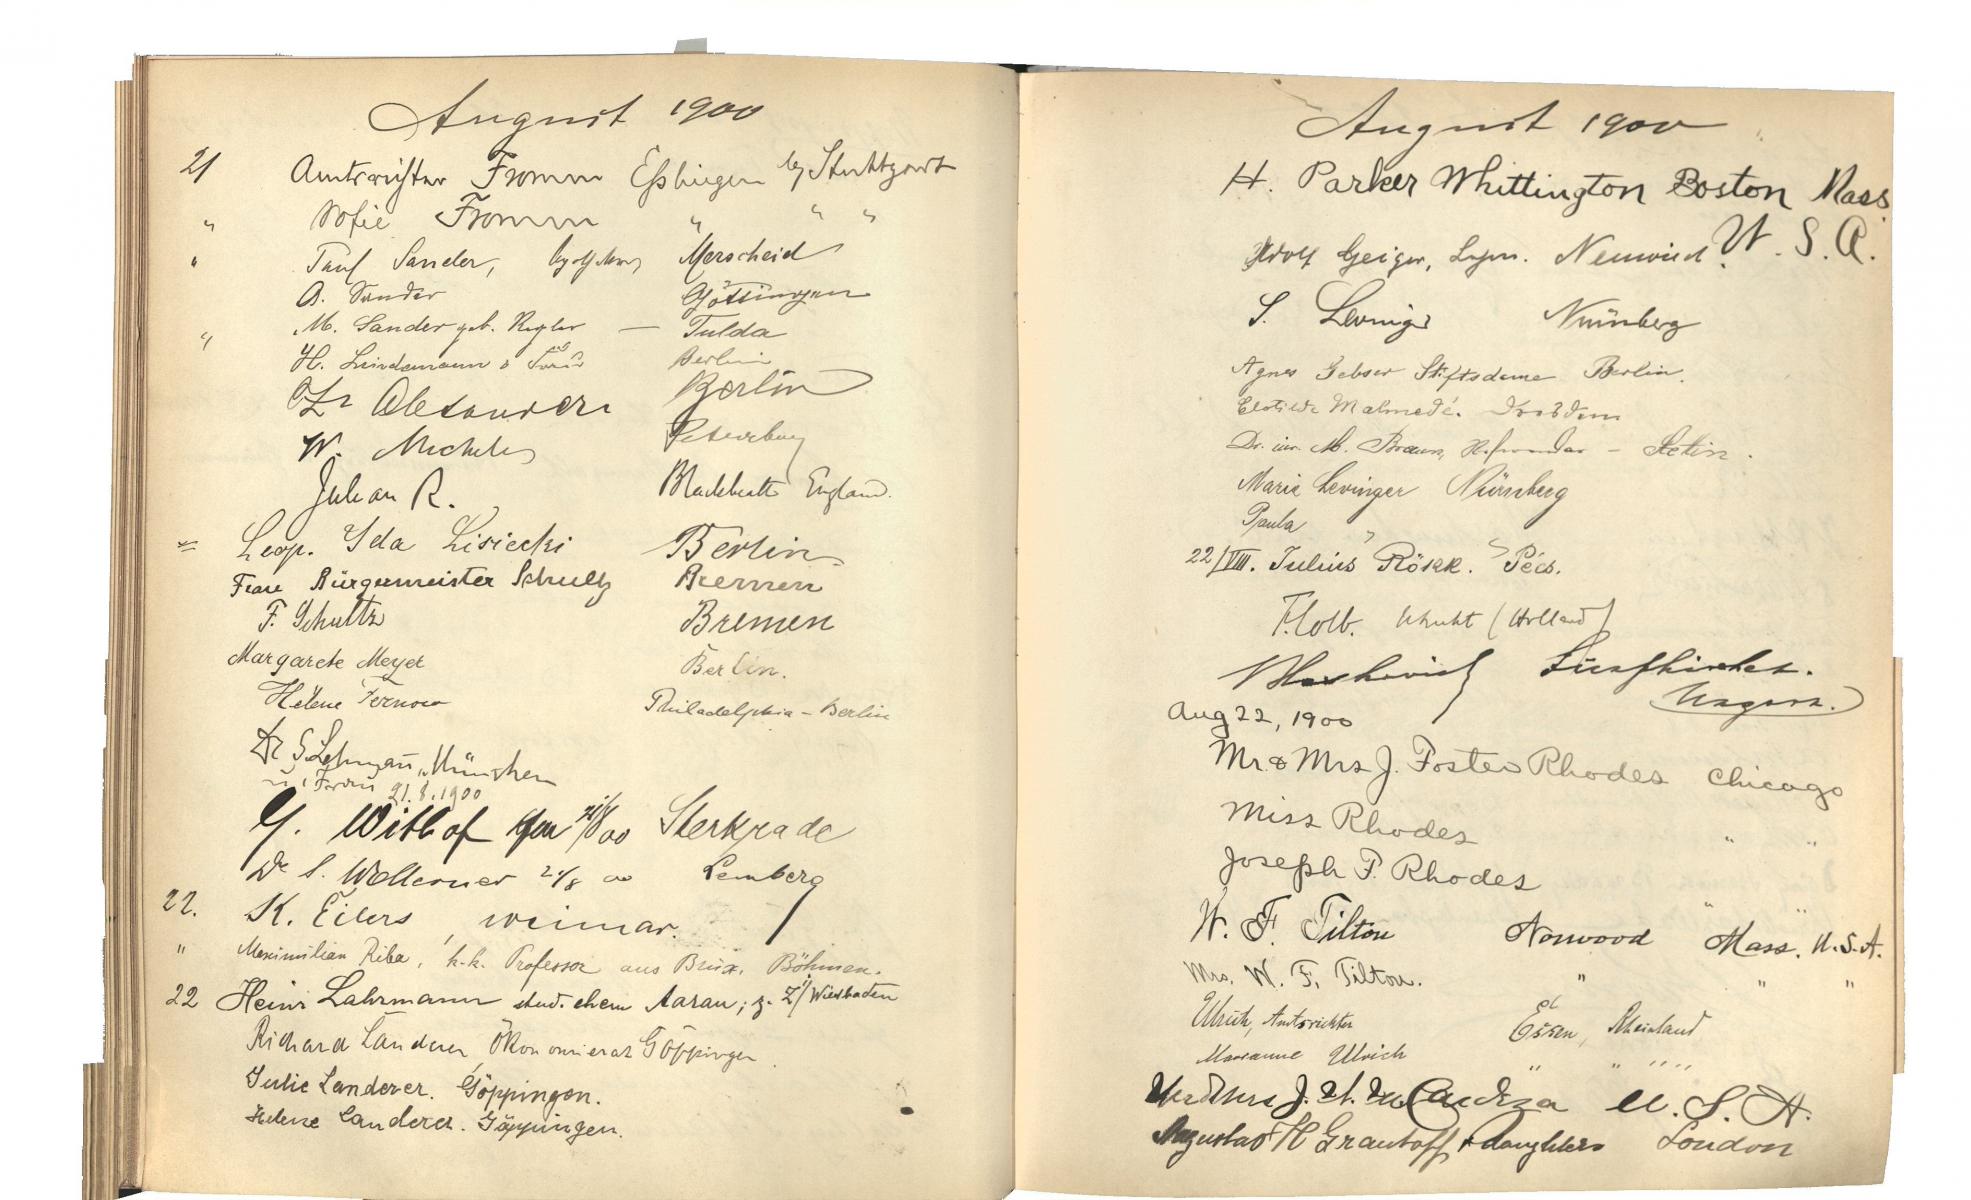 August 1900
21 Amtsrichter Fromm Eßlingen by Stuttgart
" Sofie Fromm " " "
" Sander, Merscheid
A. Sander Göttingen
" M. Sander geb. — Fulda
H. Lindemann & Frau Berlin
Dr Alexander Berlin
W. Michels Petersburg
Julian R. Blackheath England.
Leop. Ida Lisiecki Berlin
Frau Bürgermeister Schultz Bremen
F. Schultz Bremen
Margarete Meyer Berlin.
Helene Fernow Philadelphia – Berlin
Dr S. Lehmann, München
u. Frau 21.8.1900
G. Withof 21/8 00 Sterkrade
Dr S. 21/8 00 Lemberg
22. K. Eilers, Weimar.
" Maximilian Riba, k.k. Professor aus Brüx, Böhmen.
22 Heinr Lahrmann stud. chem Aarau; z. Z. Wiesbaden
Richard Landerer, Ökonomierat Göppingen
Julie Landerer. Göppingen.
Helene Landerer. Göppingen.
August 1900
H. Parker Whittington Boston Mass.
U. S. A.
Adolf Geiger, Neuwied.
S. Levinger Nürnberg
Agnes Gebser Stiftsdame Berlin.
Clotilde Malmedé. Dresden
Dr. iur. M. Braun, Referendar – Stettin.
Marie Levinger Nürnberg
Paula " "
22/VIII. Julius Pécs.
Utrecht (Holland)
Ungarn.
Aug 22, 1900
Mr. & Mrs J. Foster Rhodes Chicago
Miss Rhodes " "
Joseph F. Rhodes " "
W. F. Tilton Norwood Mass. U.S.A.
Mrs. W. F. Tilton. " " "
Ulrich, Amtsrichter Essen, Rheinland
Marianne Ulrich " " "
J. U. S. A.
Augustus H Grautoff & daughters London